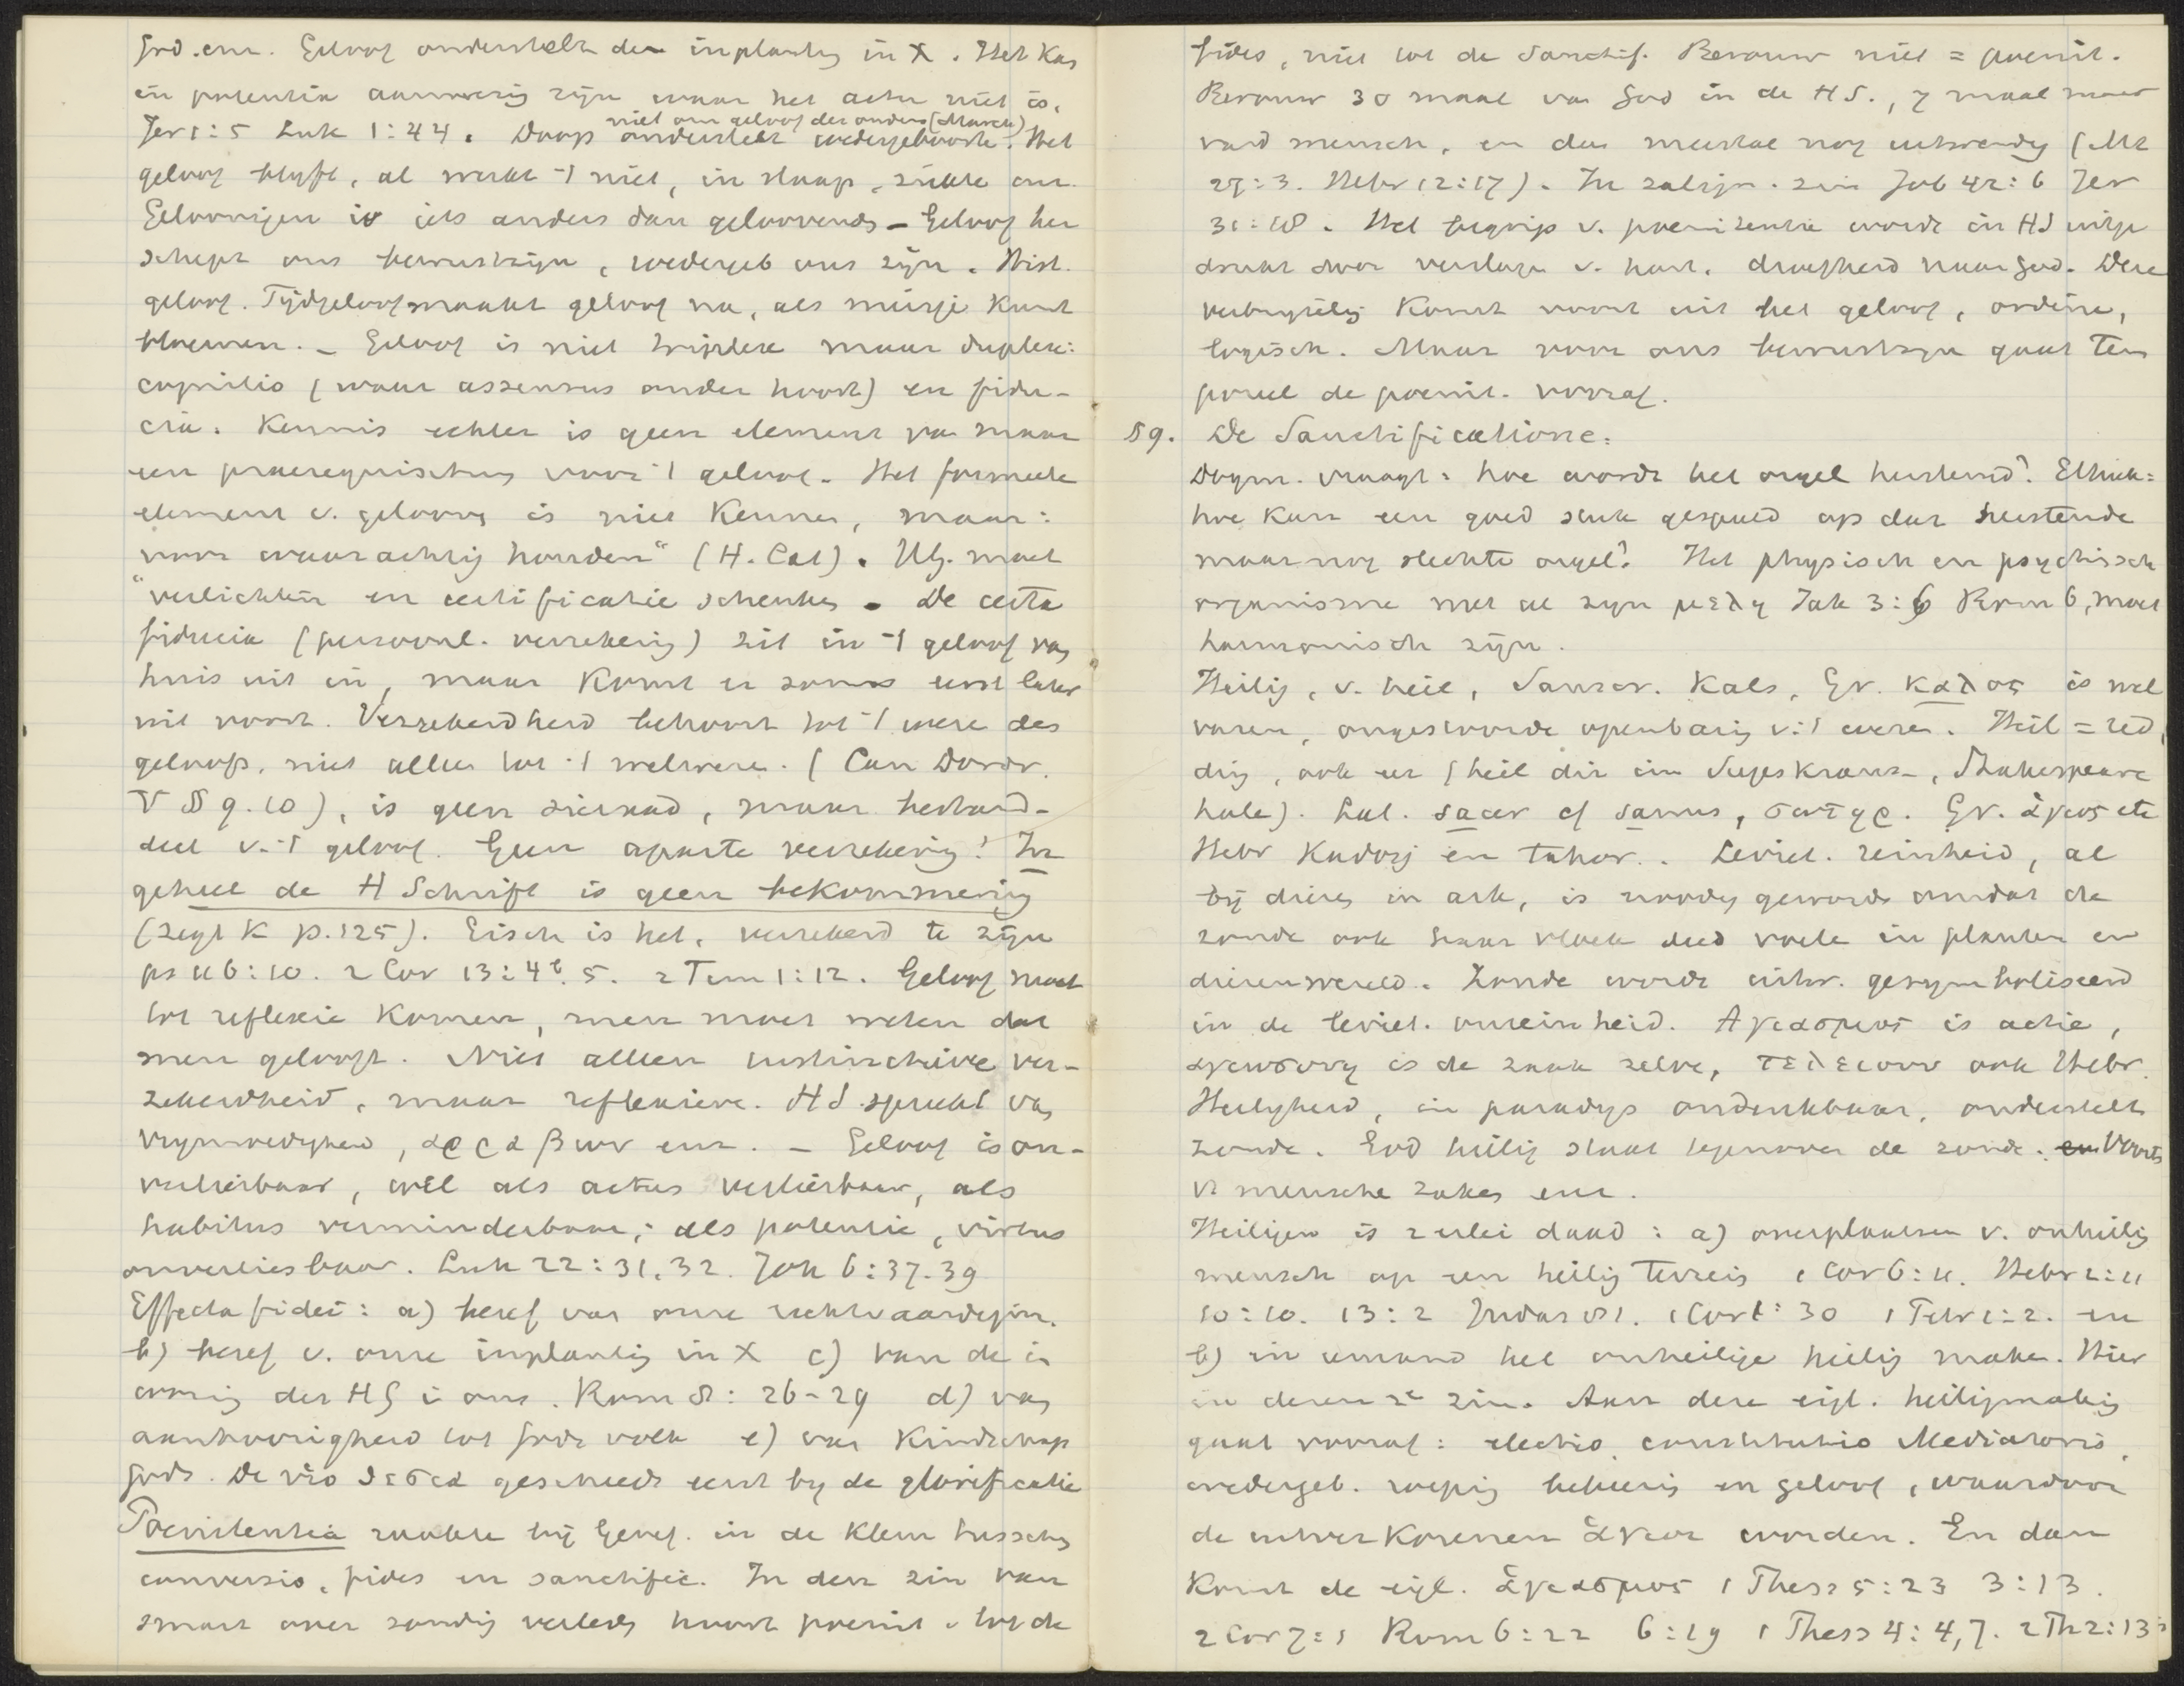 God. enz. Geloof onderstelt de inplanting in X. Het kan
in potentia aanwezig zijn waar het actu niet is.
niet om geloof der ouders (Marck)
Jer 1:5 Luk 1:44. Doop onderstelt wedergeboorte. Het
geloof blijft, al werkt 't niet, in slaap, ziekte enz.
Geloovigen is iets anders dan geloovende - Geloof her
schept ons bewustzijn, wedergeb ons zijn. Hist.
geloof. Tijdgeloof maakt geloof na, als meisje kunst
bloemen. - Geloof is niet triplex maar duplex:
cognitio (waar assensus onder hoort) en fidu-
cia. Kennis echter is geen element van maar
een praerequisitum voor 't geloof. Het formeele
element v. geloof is niet kennen, maar:
voor waarachtig houden" (H. Cat). HG. moet
"verlichten en certificatie schenken. De certa
fiducia (persoonl. verzekering) zit in 't geloof van
huis uit in, maar komt er soms eerst later
uit voort. Verzekerdheid behoort tot 't wezen des
geloofs, niet alleen tot 't welwezen. (Can Dordr.
V §§ 9. 10), is geen sieraad, maar bestand-
deel v. 't geloof. Geen aparte verzekering! In
geheel de H Schrift is geen bekommering
(zegt K p. 125). Eisch is het, verzekerd te zijn
ps 116:10. 2 Cor 13:4b. 5. 2 Tim 1:12. Geloof moet
tot reflexie komen, men moet weten dat
men gelooft. Niet alleen instinctieve ver-
zekerdheid, maar reflexieve. HS. spreekt van
vrijmoedigheid, αρραβων enz. - Geloof is on-
verliesbaar, wel als actus verliesbaar, als
habitus verminderbaar; als potentie, virtus
onverliesbaar. Luk 22:31,32. Joh 6:37-39
Effecta fidei: a) besef van onze rechtvaardigin.
b) besef v. onze inplanting in X c) van de in
woning des HG in ons. Rom 8:26-29 d) van
aanhoorigheid tot Gods volk e) van kindschap
Gods. De υἱοθεσια geschiedt eerst bij de glorificatie
Poenitentia raakte bij Geref. in de klem tusschen
conversio, fides en sanctific. In den zin van
smart over zondig verleden hoort poenit. tot de
fides, niet tot de Sanctif. Berouw niet = poenit.
Berouw 30 maal van God in de HS., 7 maal maar
van d mensch, en dan meestal nog uitwendig (Mt
27:3. Hebr 12:17). In zaligm. zin Job 42:6 Jer
31:18. Het begrip v. poenitentie wordt in HS uitge
drukt door verslagen v. hart, droefheid naar God. Deze
verbrijzeling komt voort uit het geloof, ordine,
logisch. Maar voor ons bewustzijn gaat tem
poreel de poenit. vooraf.
§ 9. De Sanctificatione.
Dogm. vraagt: hoe wordt het orgel hersteld? Ethiek:
hoe kan een goed stuk gespeeld op dat bestaande
maar nog slechte orgel? Het physisch en psychisch
organisme met al zijn μελη Jak 3:6 Rom 6, moet
harmonisch zijn.
Heilig, v. heil, Sanscr. Kals, Gr. καλος is wel
varen, ongestoorde openbaring v. 't wezen. Heil = red
ding, ook eer (heil dir im Siegeskranz, Shakespeare
hale). Lat. sacer cf sanus, σωτηρ. Gr. ἁγιος etc
Hebr Kadosj en tahor. Leviet. reinheid, al
bij dieren in ark, is noodig geworden omdat de
zonde ook haar vloek deed voelen in planten en
dierenwereld. Zonde wordt uitw. gesymboliseerd
in de leviet. onreinheid. Ἁγιασμος is actie,
ἁγιωσυνη is de zaak zelve, τελειουν ook Hebr.
Heiligheid, in paradijs ondenkbaar, onderstelt
zonde. God heilig staat tegenover de zonde. Voorts
v. menschen zaken enz.
Heiligen is 2 erlei daad: a) overplaatsen v. onheilig
mensch op een heilig terrein 1 Cor 6:11. Hebr 2:11
10:10. 13:2 Judas vs 1. 1 Cor 1:30 1 Petr 1:2. en
b) in iemand het onheilige heilig maken. Hier
in dezen 2e zin. Aan deze eigl. heiligmaking
gaat vooraf: electio, constitutio Mediatoris,
wedergeb. roeping bekeering en geloof, waardoor
de uitverkorenen ἁγιοι worden. En dan
komt de eigl. ἁγιασμος 1 Thess 5:23 3:13.
2 Cor 7:1 Rom 6:22 6:19 1 Thess 4:4,7. 2 Th 2:13